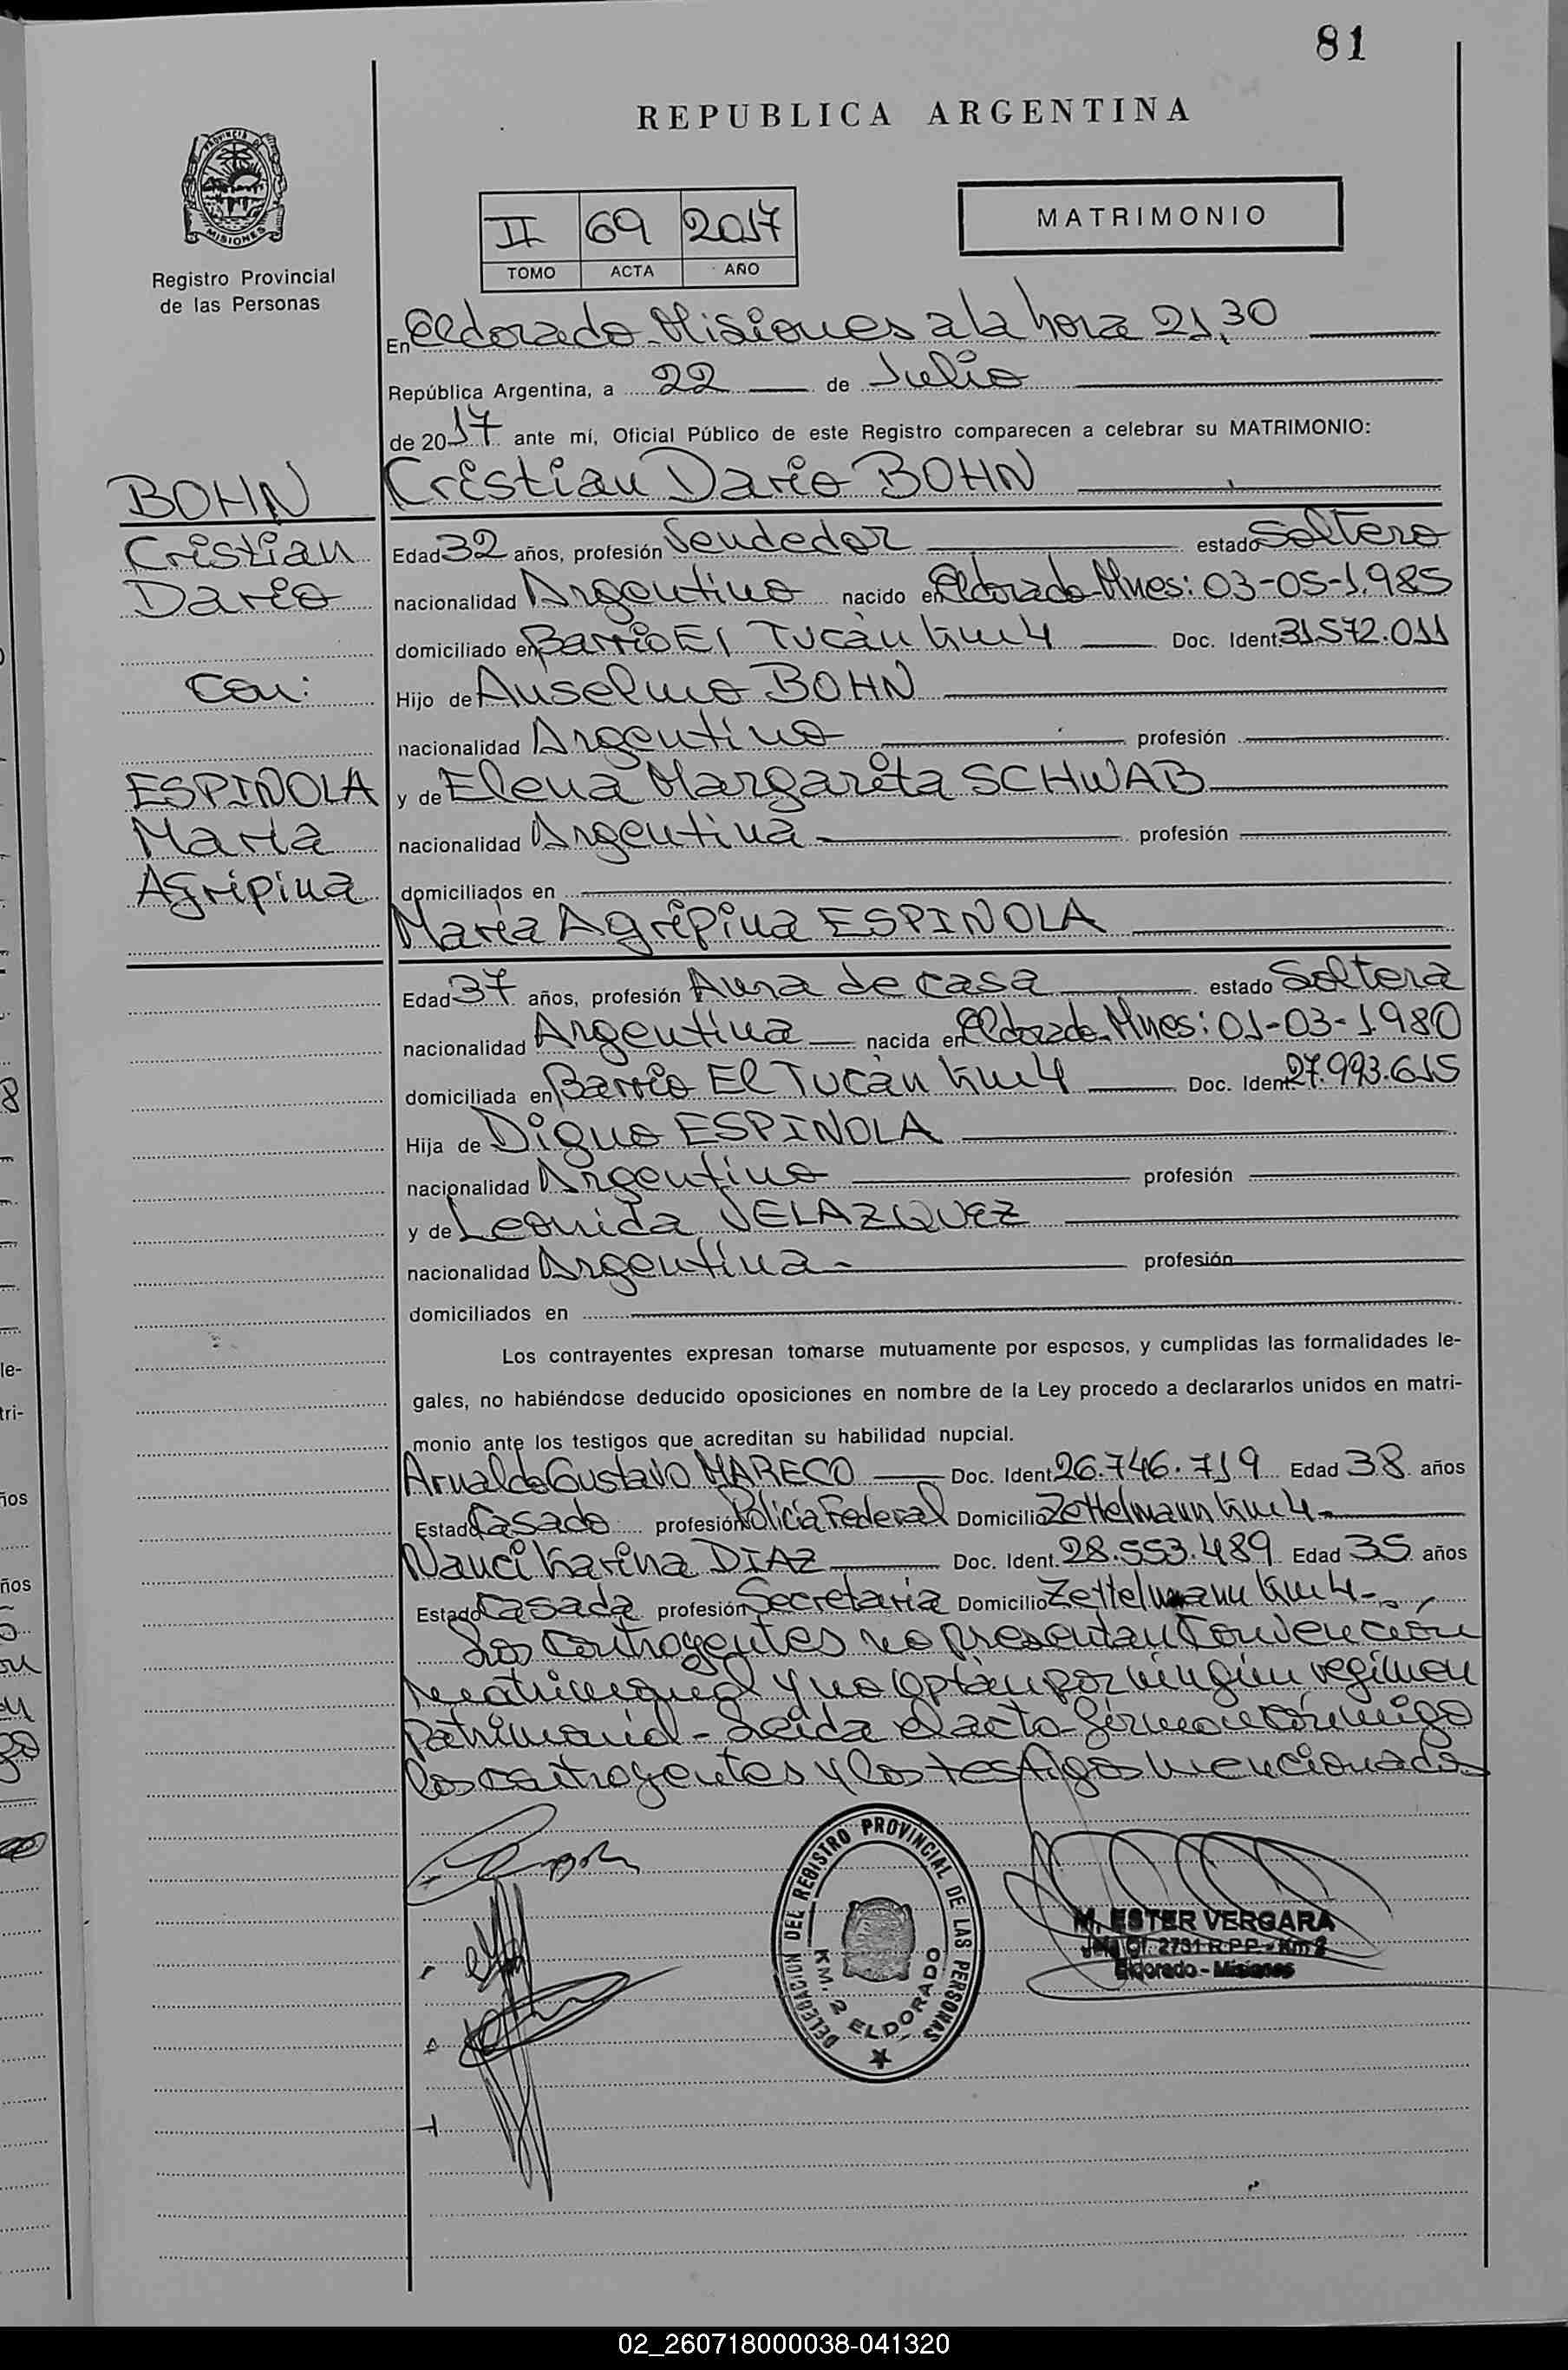 81
REPUBLICA ARGENTINA
PROVINCIA DE
MISIONES
Registro Provincial
de las Personas
II 69 2017
TOMO ACTA AÑO
MATRIMONIO
En Eldorado-Misiones a la hora 21,30
República Argentina, a 22 de Julio
de 2017 ante mí, Oficial Público de este Registro comparecen a celebrar su MATRIMONIO:
BOHN
Cristian
Dario
Con:
ESPINOLA
Maria
Agripina
Cristian Dario BOHN
Edad 32 años, profesión Vendedor estado Soltero
nacionalidad Argentino nacido en Eldorado-Mnes: 03-05-1.985
domiciliado en Barrio El Tucán Km 4 Doc. Ident. 31.572.011
Hijo de Anselmo BOHN
nacionalidad Argentino profesión
y de Elena Margarita SCHWAB
nacionalidad Argentina profesión
domiciliados en
Maria Agripina ESPINOLA
Edad 37 años, profesión Ama de casa estado Soltera
nacionalidad Argentina nacida en Eldorado-Mnes: 01-03-1.980
domiciliada en Barrio El Tucán Km 4 Doc. Ident. 27.993.615
Hija de Digno ESPINOLA
nacionalidad Argentino profesión
y de Leonida VELAZQUEZ
nacionalidad Argentina profesión
domiciliados en
Los contrayentes expresan tomarse mutuamente por esposos, y cumplidas las formalidades le-
gales, no habiéndose deducido oposiciones en nombre de la Ley procedo a declararlos unidos en matri-
monio ante los testigos que acreditan su habilidad nupcial.
Arnaldo Gustavo MARECO Doc. Ident. 26.746.719 Edad 38 años
Estado Casado profesión Policía Federal Domicilio Zettelmann Km 4-
Nanci Karina DIAZ Doc. Ident. 28.553.489 Edad 35 años
Estado Casada profesión Secretaria Domicilio Zettelmann Km 4-
Los contrayentes no presentan Convención
Matrimonial y no optan por ningún regimen
patrimonial- Leída el acta firman conmigo
los contrayentes y los testigos mencionados
DELEGACION DEL REGISTRO PROVINCIAL DE LAS PERSONAS
KM. 2 ELDORADO
M. ESTER VERGARA
Jefa Of. 2731 R.P.P. - Km 2
Eldorado - Misiones
8
le-
tri-
ños
ños
02_260718000038-041320